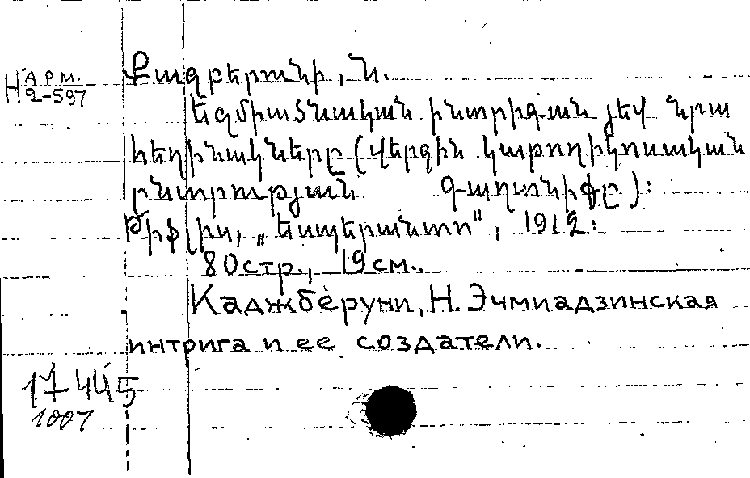 Н АРМ. 2-597
Քաջբերունի, Ն.
Եջմիածնական ինտրիգան յեվ նրա
հեղինակները (վերջին կաթողիկոսական
ընտրության գաղտնիքը):
Թիֆլիս, „Եսպերանտո", 1912:
80стр., 19см.
Каджберуни, Н. Эчмиадзинская
интрига и ее создатели.
17445
1007